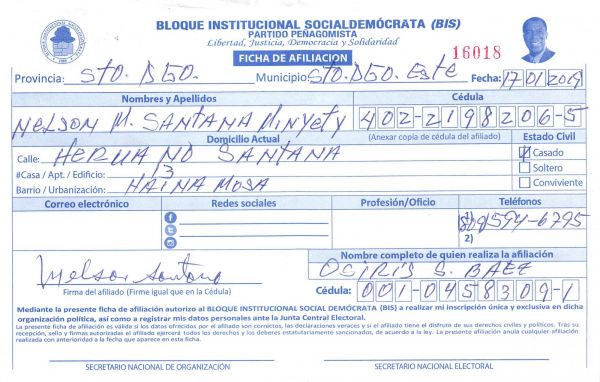 BLOQUE INSTITUCIONAL SOCIALDEMÓCRATA (BIS)
PARTIDO PEÑAGOMISTA
Libertad, Justicia, Democracia y Solidaridad
FICHA DE AFILIACIÓN
16018
Provincia: STO. DGO. Municipio: STO. DGO. ESTE Fecha: 17/01/2019
Nombres y Apellidos Cédula
NELSON M. SANTANA MINYETY 402-2198206-5
Domicilio Actual (Anexar copia de cédula del afiliado) Estado Civil
Calle: HERMANO SANTANA Casado
#Casa / Apt. / Edificio: 13 Soltero
Barrio / Urbanización: HAINA MOSA Conviviente
Correo electrónico Redes sociales Profesión/Oficio Teléfonos
1) 809 594-6795
2)
Nelson Santana
Firma del afiliado (Firme igual que en la Cédula)
Nombre completo de quien realiza la afiliación
OCIRIS S. BAEZ
Cédula: 001-0458309-1
Mediante la presente ficha de afiliación autorizo al BLOQUE INSTITUCIONAL SOCIAL DEMÓCRATA (BIS) a realizar mi inscripción única y exclusiva en dicha
organización política, así como a registrar mis datos personales ante la Junta Central Electoral.
La presente ficha de afiliación es válida si los datos ofrecidos por el afiliado son correctos, las declaraciones veraces y si el afiliado tiene el disfrute de sus derechos civiles y políticos. Tras su
recepción, sello y firmas autorizadas el afiliado ejercerá todos los derechos y los deberes estatutariamente sancionados, de acuerdo a la ley. La presente afiliación anula cualquier afiliación
realizada con anterioridad a la fecha que aparece en esta ficha.
SECRETARIO NACIONAL DE ORGANIZACIÓN SECRETARIO NACIONAL ELECTORAL